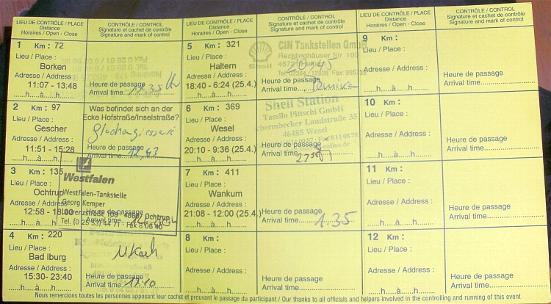 LIEU DE CONTRÔLE / PLACE
Distance
Horaires / Open - Close
CONTRÔLE / CONTROL
Signature et cachet de contrôle
Signature and mark of control
LIEU DE CONTRÔLE / PLACE
Distance
Horaires / Open - Close
CONTRÔLE / CONTROL
Signature et cachet de contrôle
Signature and mark of control
LIEU DE CONTRÔLE / PLACE
Distance
Horaires / Open - Close
CONTRÔLE / CONTROL
Signature et cachet de contrôle
Signature and mark of control
1 Km : 72
Lieu / Place :
Borken
Adresse / Address :
11:07 - 13:48
...h......à......h......
Heure de passage
Arrival time
2 Km : 97
Lieu / Place :
Gescher
Adresse / Address :
11:51 - 15:28
...h......à......h......
Was befindet sich an der
Ecke Hofstraße/Inselstraße?
Heure de passage
Arrival time
12.43
3 Km : 135
Lieu / Place :
Ochtrup
Adresse / Address :
12:58 - 18:00
...h......à......h......
Westfalen
Westfalen-Tankstelle
Georg Kemper
Ochtrup
4 Km : 220
Lieu / Place :
Bad Iburg
Adresse / Address :
15:30 - 23:40
...h......à......h......
Heure de passage
Arrival time
5 Km : 321
Lieu / Place :
Haltern
Adresse / Address :
18:40 - 6:24 (25.4.)
...h......à......h......
CIN Tankstellen GmbH
Heure de passage
Arrival time
6 Km : 369
Lieu / Place :
Wesel
Adresse / Address :
20:10 - 9:36 (25.4.)
...h......à......h......
Shell Station
46485 Wesel
Heure de passage
Arrival time
7 Km : 411
Lieu / Place :
Wankum
Adresse / Address :
21:08 - 12:00 (25.4.)
...h......à......h......
Heure de passage
Arrival time
1.35
8 Km :
Lieu / Place :
Adresse / Address :
...h......à......h......
Heure de passage
Arrival time
9 Km :
Lieu / Place :
Adresse / Address :
...h......à......h......
Heure de passage
Arrival time
10 Km :
Lieu / Place :
Adresse / Address :
...h......à......h......
Heure de passage
Arrival time
11 Km :
Lieu / Place :
Adresse / Address :
...h......à......h......
Heure de passage
Arrival time
12 Km :
Lieu / Place :
Adresse / Address :
...h......à......h......
Heure de passage
Arrival time
Nous remercions toutes les personnes apposant leur cachet et prouvent le passage du participant / Our thanks to all officials and helpers involved in the controlling and running of this event